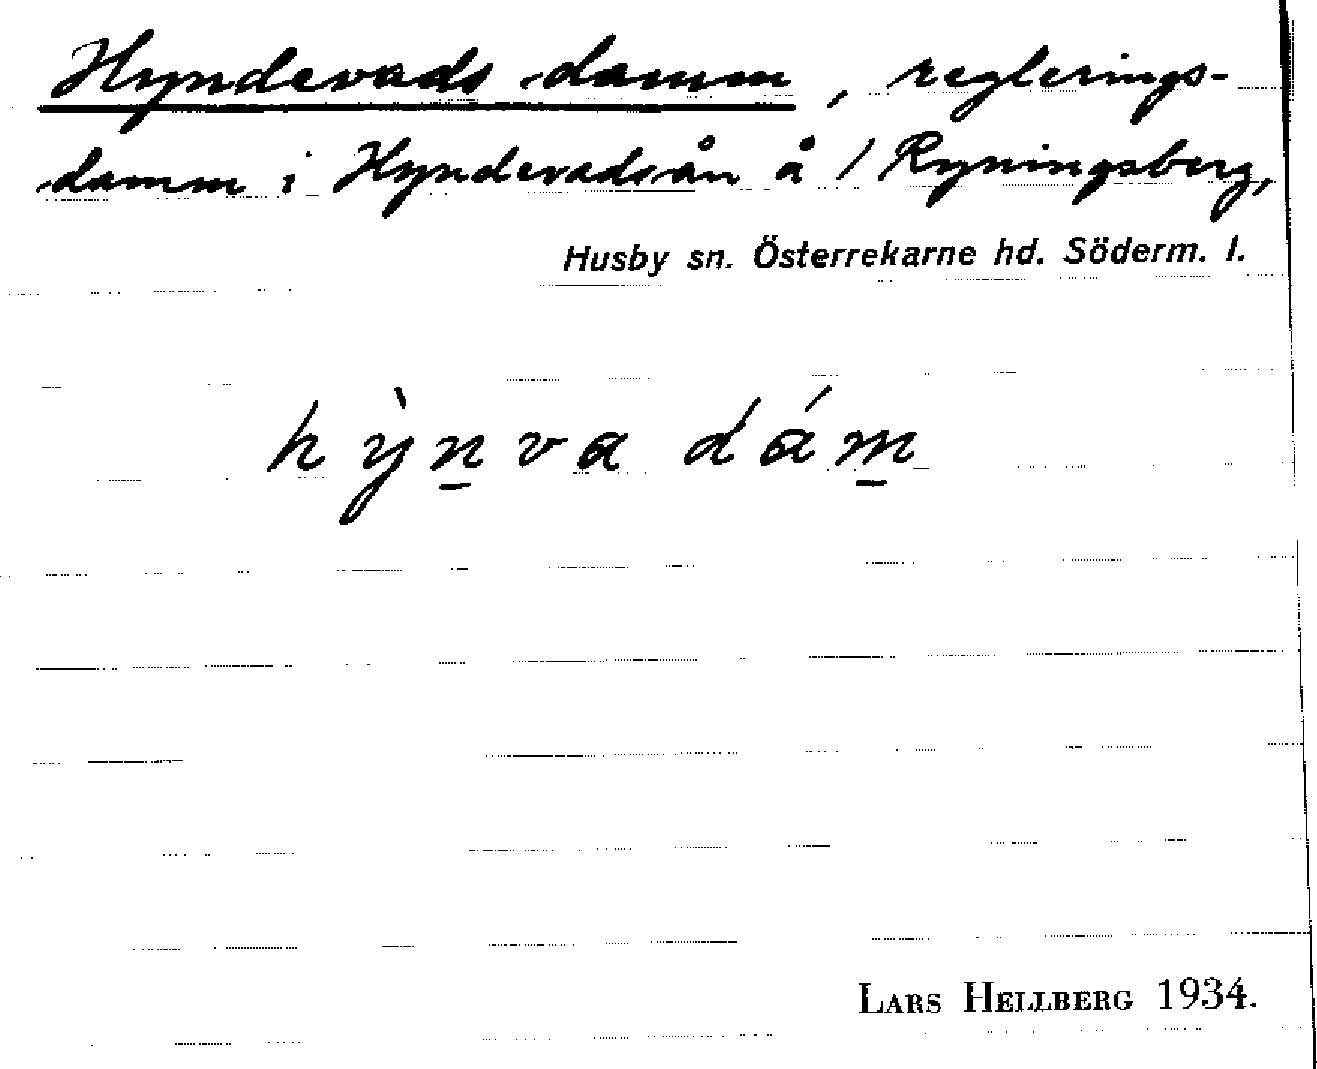 Hyndevads damm, reglerings-
damm i Hyndevadsån å / Ryningsberg,
Husby sn. Österrekarne hd. Söderm. l.
hỳn̲va dám̲
LARS HELLBERG 1934.